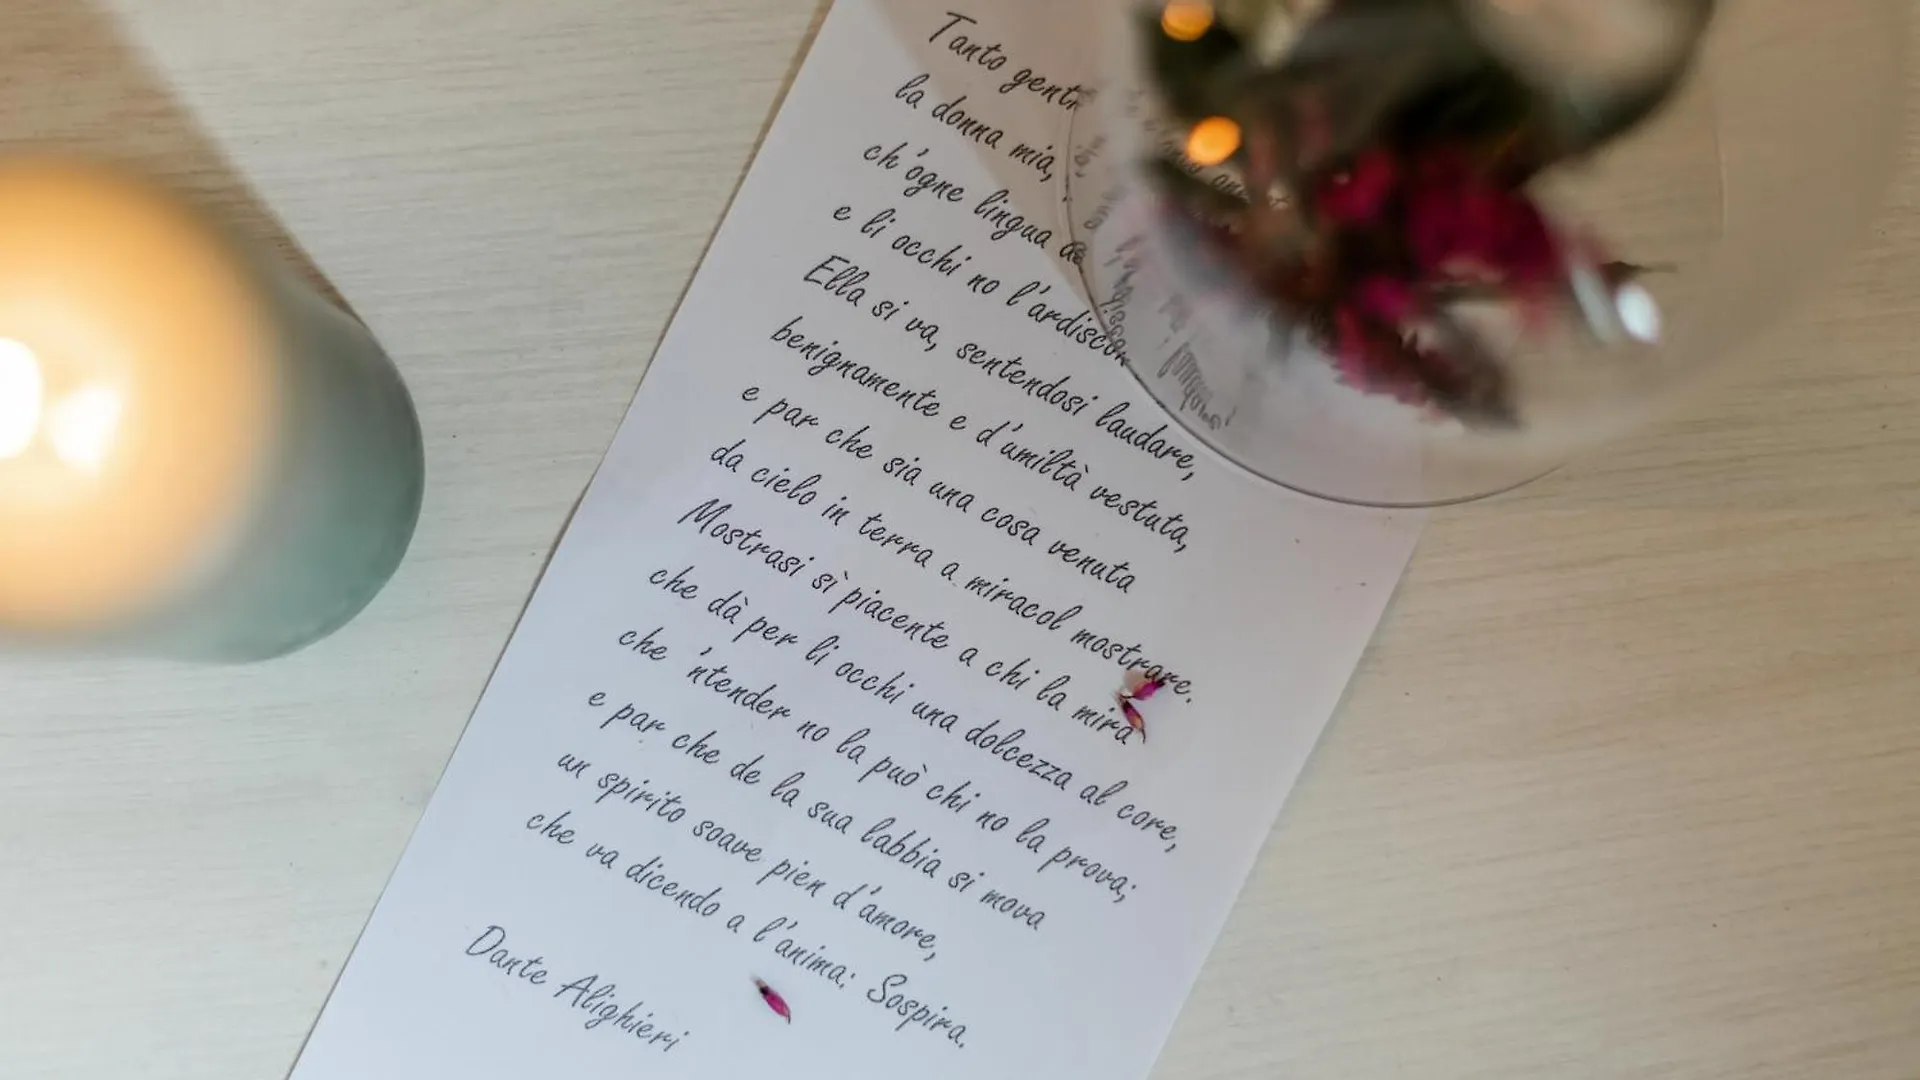 Tanto
la donna mia,
ch'ogne lingua
e li occhi no l'ardiscon
Ella si va, sentendosi laudare,
benignamente e d'umiltà vestuta,
e par che sia una cosa venuta
da cielo in terra a miracol mostrare.
Mostrasi sì piacente a chi la mira
che dà per li occhi una dolcezza al core,
che 'ntender no la può chi no la prova;
e par che de la sua labbia si mova
un spirito soave pien d'amore,
che va dicendo a l'anima: Sospira.
Dante Alighieri